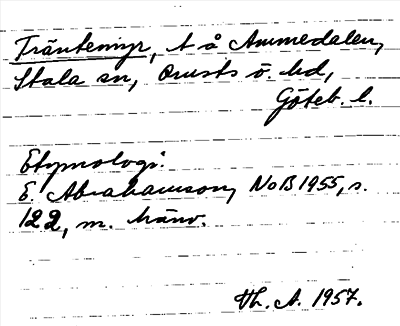 Träntemyr, t å Ammedalen,
Stala sn, Orusts ö. hd,
Göteb. l.
Etymologi.
E. Abrahamson, NoB 1955, s.
122, m. hänv.
Th. A. 1957.